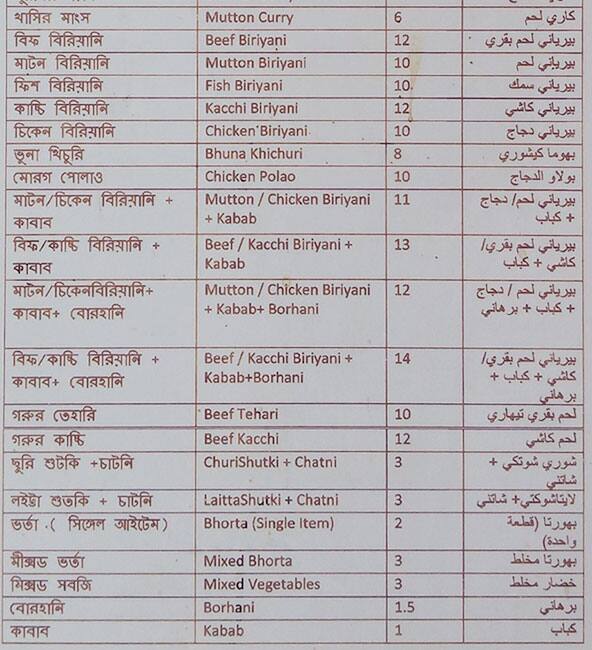 খাসির মাংস Mutton Curry 6 كاري لحم
বিফ বিরিয়ানি Beef Biriyani 12 بيرياني لحم بقري
মাটন বিরিয়ানি Mutton Biriyani 10 بيرياني لحم
ফিশ বিরিয়ানি Fish Biriyani 10 بيرياني سمك
কাচ্চি বিরিয়ানি Kacchi Biriyani 12 بيرياني كاشي
চিকেন বিরিয়ানি Chicken Biriyani 10 بيرياني دجاج
ভূনা খিচুরি Bhuna Khichuri 8 بهوما كيشوري
মোরগ পোলাও Chicken Polao 10 بولاو الدجاج
মাটন/চিকেন বিরিয়ানি + Mutton / Chicken Biriyani 11 بيرياني لحم/ دجاج
কাবাব + Kabab + كباب
বিফ/কাচ্চি বিরিয়ানি + Beef / Kacchi Biriyani + 13 بيرياني لحم بقري/
কাবাব Kabab كاشي + كباب
মাটন/চিকেনবিরিয়ানি+ Mutton / Chicken Biriyani 12 بيرياني لحم / دجاج
কাবাব+ বোরহানি + Kabab+ Borhani + كباب + برهاني
বিফ/কাচ্চি বিরিয়ানি + Beef / Kacchi Biriyani + 14 بيرياني لحم بقري/
কাবাব+ বোরহানি Kabab+Borhani كاشي + كباب +
برهاني
গরুর তেহারি Beef Tehari 10 لحم بقري تيهاري
গরুর কাচ্চি Beef Kacchi 12 لحم كاشي
ছুরি শুটকি +চাটনি ChuriShutki + Chatni 3 شوري شوتكي +
شاتني
লইট্টা শুতকি + চাটনি LaittaShutki + Chatni 3 لايتاشوكتي+ شاتني
ভর্তা ( সিঙ্গেল আইটেম) Bhorta (Single Item) 2 بهورتا (قطعة
واحدة)
মীক্সড ভর্তা Mixed Bhorta 3 بهورتا مخلط
মিক্সড সবজি Mixed Vegetables 3 خضار مخلط
বোরহানি Borhani 1.5 برهاني
কাবাব Kabab 1 كباب